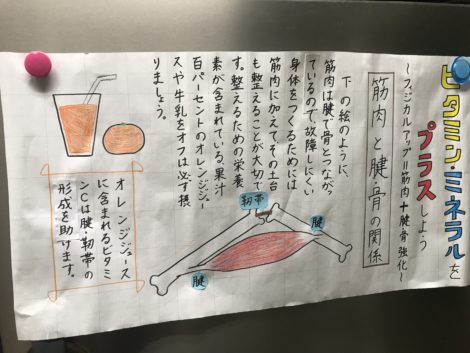 ビタミン・ミネラルを
プラスしよう
〜フィジカルアップ=筋肉+腱骨強化〜
筋肉と腱・骨の関係
下の絵のように、
筋肉は腱で骨とつながっ
ているので、故障しにくい
身体をつくるためには
筋肉に加えて、その土台
も整えることが大切で
す。整えるための栄養
素が含まれている、果汁
百パーセントのオレンジジュー
スや牛乳をオフは必ず摂
りましょう。
靭帯
腱
腱
オレンジジュース
に含まれるビタミ
ンCは腱・靭帯の
形成を助けます。